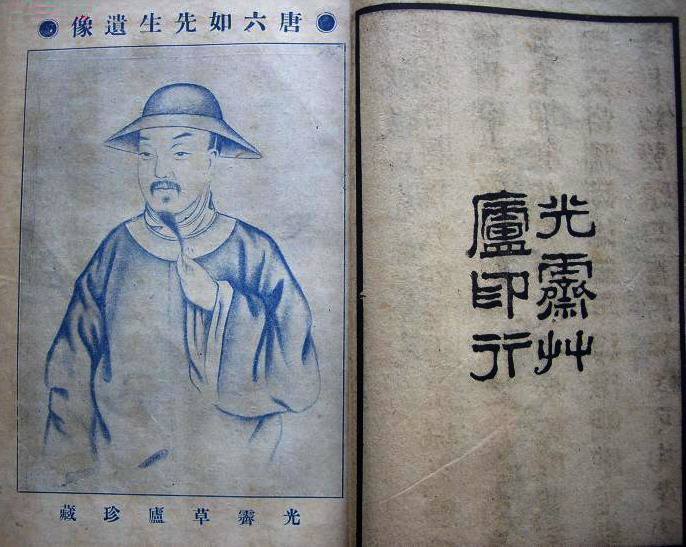 光霽艸
廬印行
唐六如先生遺像
光霽草廬珍藏